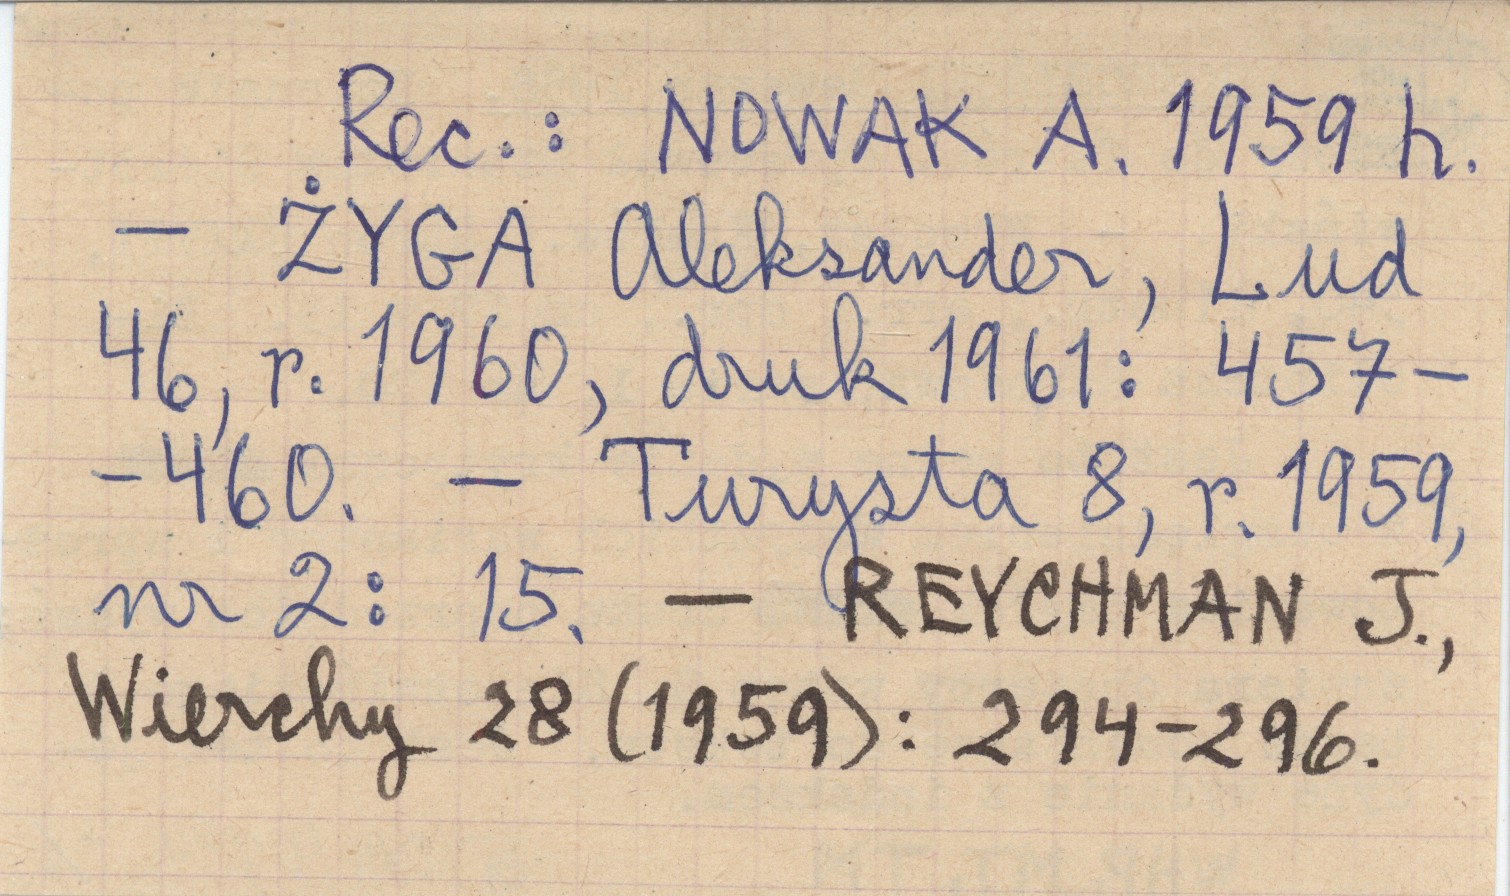 Rec.: NOWAK A. 1959 h.
— ŻYGA Aleksander, Lud
46, r. 1960, druk 1961: 457-
-460. — Turysta 8, r. 1959,
nr 2: 15. — REYCHMAN J.,
Wierchy 28 (1959): 294-296.